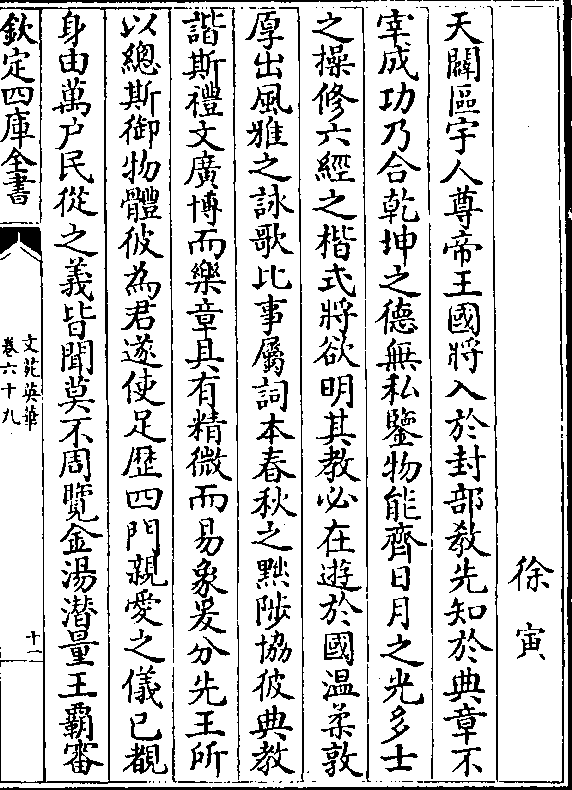 徐寅
天闢區宇人尊帝王國將入於封部教先知於典章不
宰成功乃合乾坤之德無私鑒物能齊日月之光多士
之操修六經之楷式將欲明其教必在遊於國温柔敦
厚出風雅之詠歌比事屬詞本春秋之黜陟協彼典教
諧斯禮文廣博而樂章具有精微而易象爰分先王所
以總斯御物體彼為君遂使足歴四門親愛之儀已覩
身由萬户民從之義皆聞莫不周覽金湯潜量王霸審
欽定四庫全書
文苑英華
卷六十九
十一